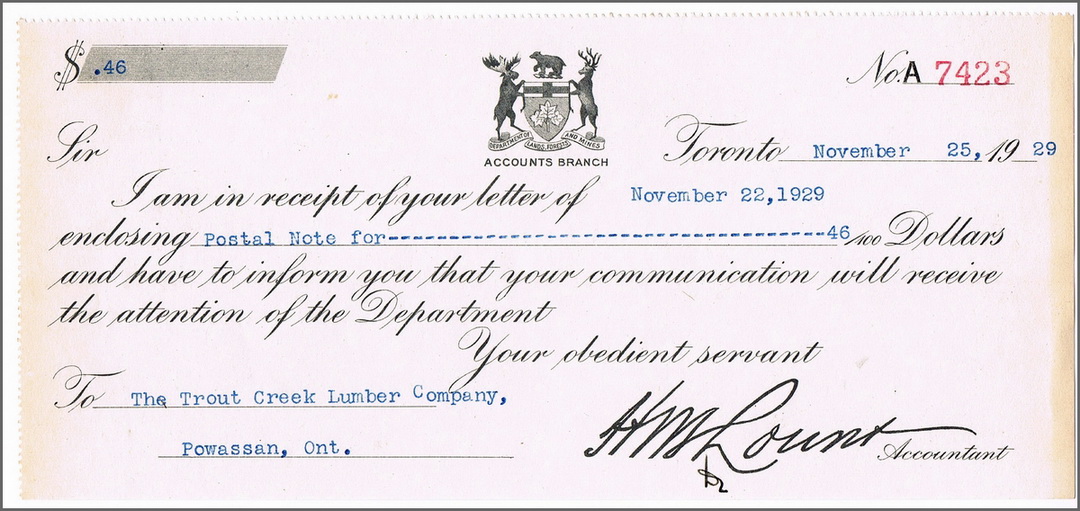 $ .46
No. A 7423
DEPARTMENT OF LANDS, FORESTS AND MINES
ACCOUNTS BRANCH
Toronto November 25, 19 29
Sir
I am in receipt of your letter of November 22, 1929
enclosing Postal Note for------------------------------------46/100 Dollars
and have to inform you that your communication will receive
the attention of the Department
Your obedient servant
To The Trout Creek Lumber Company,
Powassan, Ont.
Lount
Accountant